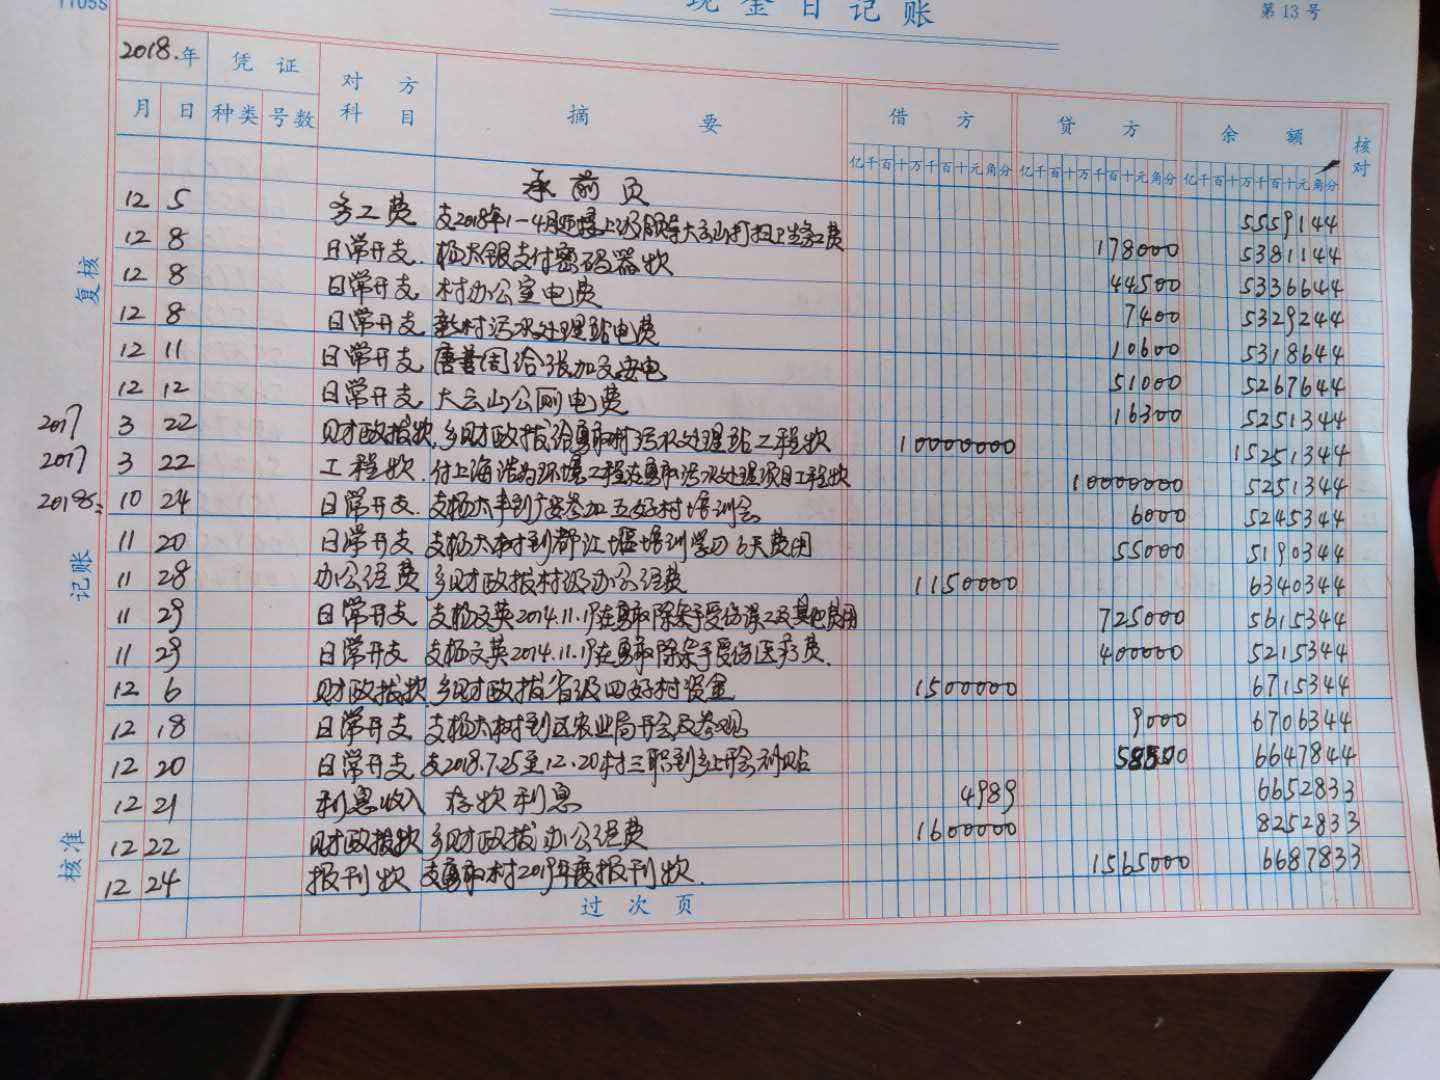 1105S
现金日记账
第13号
2018.年 凭证 对方科目 摘要 借方 贷方 余额 核对
月 日 种类 号数 亿千百十万千百十元角分 亿千百十万千百十元角分 亿千百十万千百十元角分
承前页 5559144
12 5 务工费 支2018年1-4月 大云山打扫卫生务工费 178000 5381144
12 8 日常开支. 杨太银支付密码器款 44500 5336644
12 8 日常开支 村办公室电费 7400 5329244
12 8 日常开支 新村污水处理站电费 10600 5318644
12 11 日常开支 唐善周给张加 安电 51000 5267644
12 12 日常开支 大云山公厕电费 16300 5251344
2017 3 22 财政拨款. 乡财政拨给 村污水处理站工程款 10000000 15251344
2017 3 22 工程款. 付上海浩 环境工程 污水处理项目工程款 10000000 5251344
2018年: 10 24 日常开支. 支杨太丰到广安参加五好村培训会 6000 5245344
11 20 日常开支 支杨太树到都江堰培训学习6天费用 55000 5190344
11 28 办公经费 乡财政拨村级办公经费 1150000 6340344
11 29 日常开支 支杨文英2014.11.1 在 除杂手受伤误工及其他费用 725000 5615344
11 29 日常开支 支杨文英2014.11.1 在 除杂手受伤医疗费. 400000 5215344
12 6 财政拨款 乡财政拨省级四好村资金 1500000 6715344
12 18 日常开支 支杨太树到区农业局开会及参观 9000 6706344
12 20 日常开支 支2018.7.25至12.20村三职到乡上开会补贴 58500 6647844
12 21 利息收入 存款利息 4989 6652833
12 22 财政拨款 乡财政拨办公经费 1600000 8252833
12 24 报刊款 支 村2019年度报刊款. 1565000 6687833
过次页
复核
记账
核准